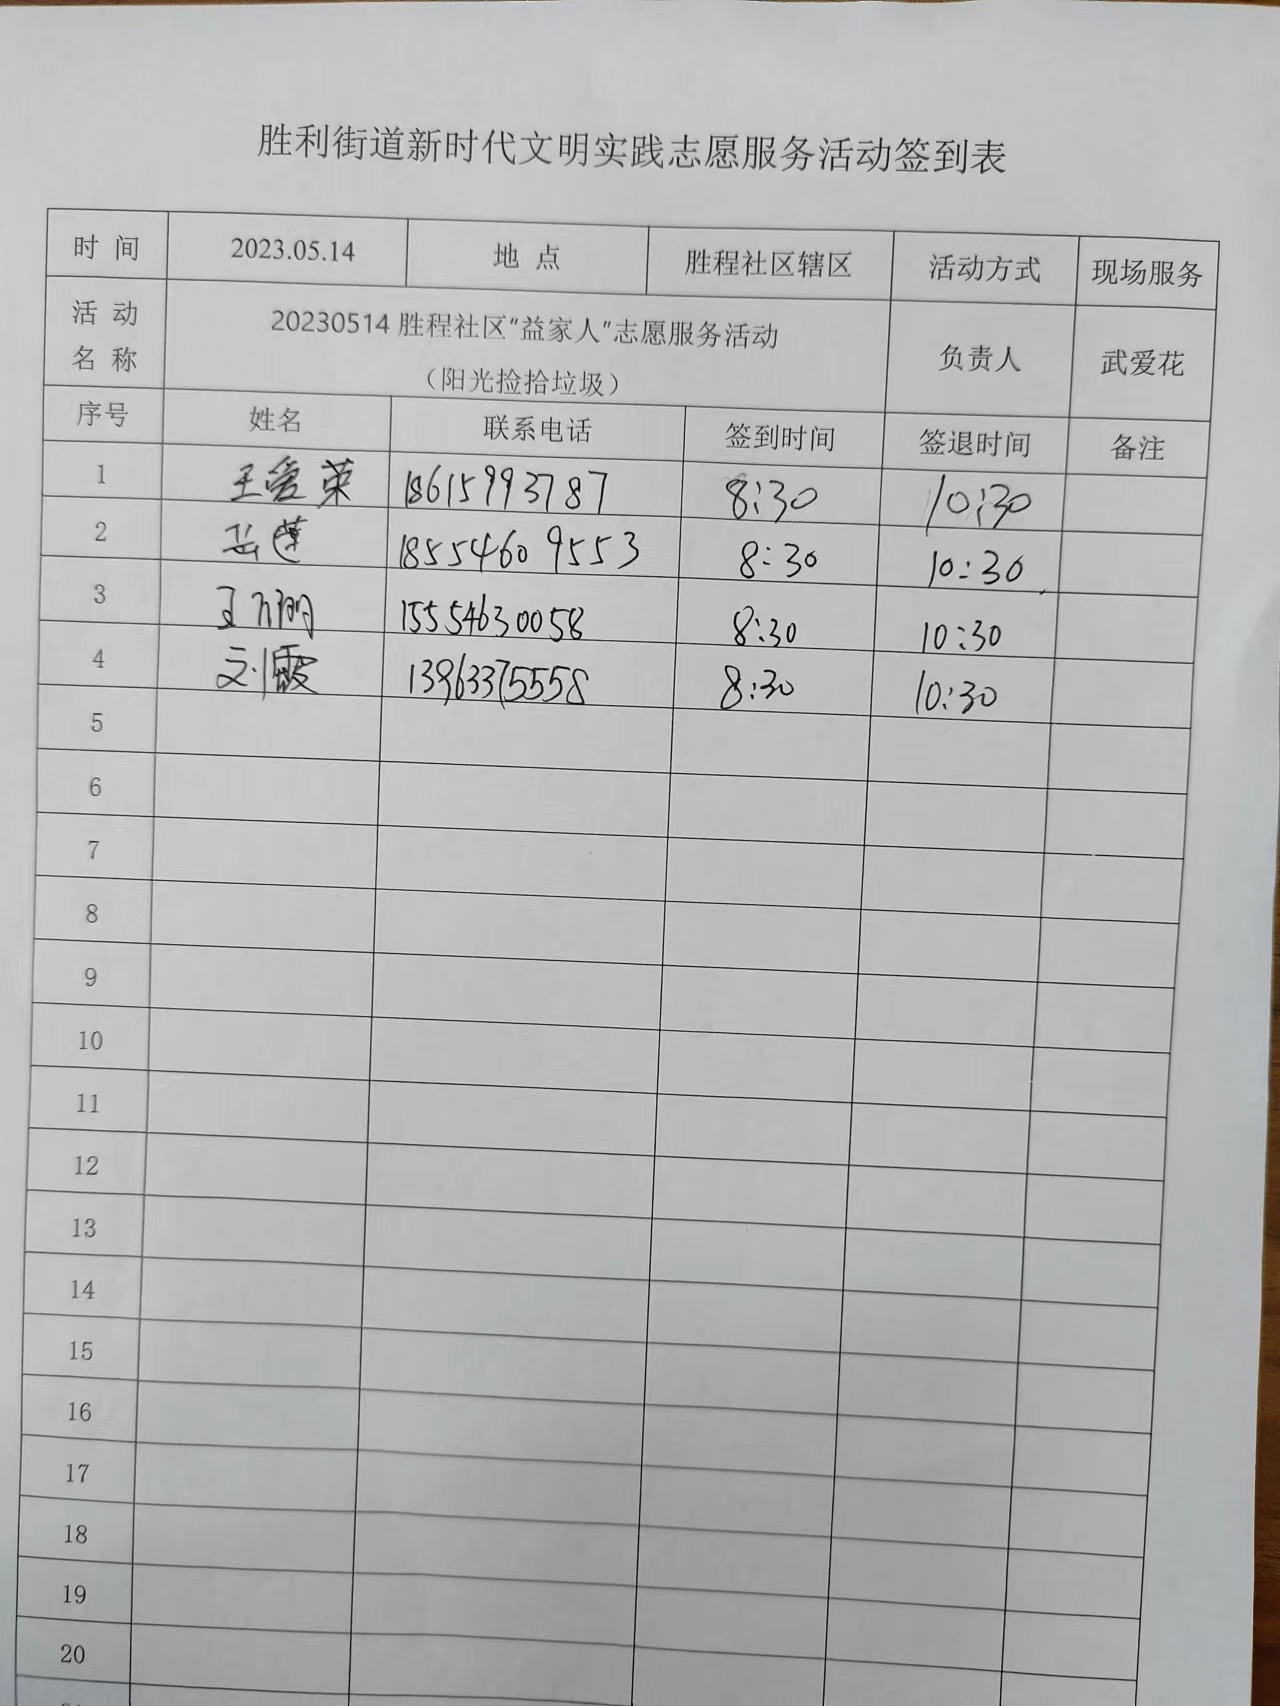 胜利街道新时代文明实践志愿服务活动签到表
时 间 2023.05.14 地 点 胜程社区辖区 活动方式 现场服务
活 动 名 称 20230514 胜程社区“益家人”志愿服务活动 负责人 武爱花
（阳光捡拾垃圾）
序号 姓名 联系电话 签到时间 签退时间 备注
1 王爱荣 18615993787 8:30 10:30
2 岳莲 18554609553 8:30 10:30
3 15554630058 8:30 10:30
4 刘霞 13963375558 8:30 10:30
5
6
7
8
9
10
11
12
13
14
15
16
17
18
19
20